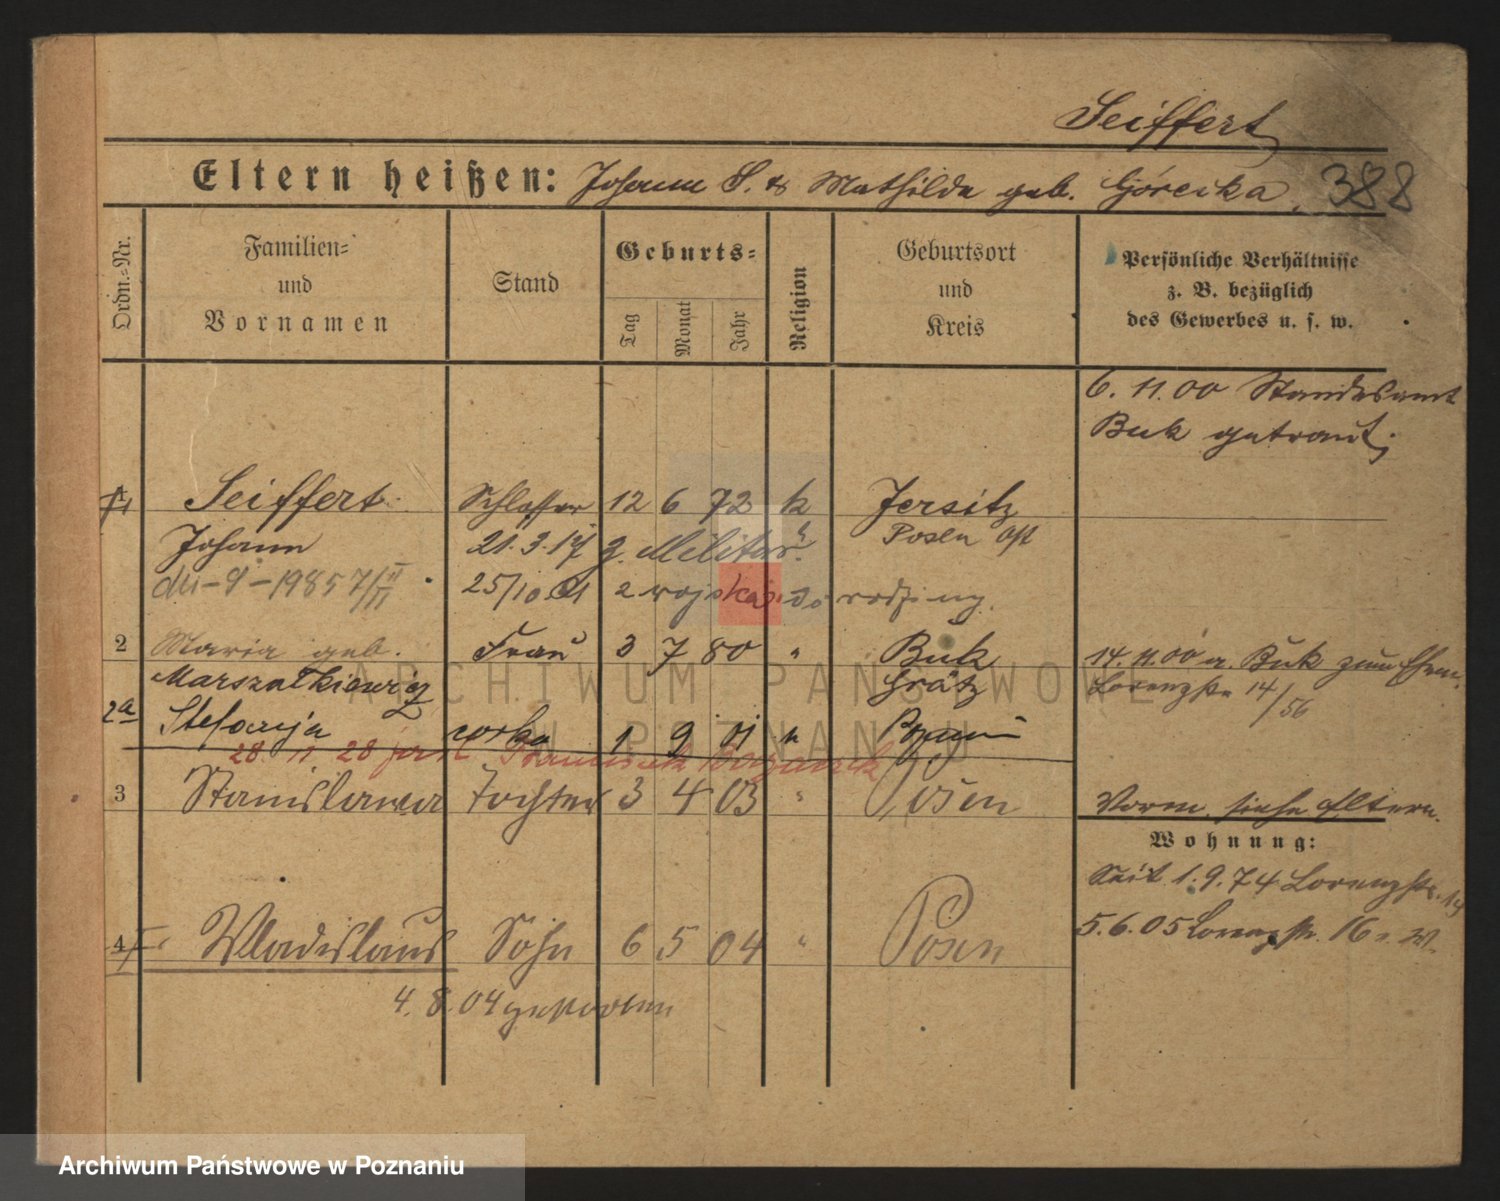 Seiffert
Eltern heißen: Johann S. & Mathilde geb. Górecka. 388
Ordn.=Nr.
Familien=
und
Vornamen
Stand
Geburts=
Tag
Monat
Jahr
Religion
Geburtsort
und
Kreis
Persönliche Verhältnisse
z. B. bezüglich
des Gewerbes u. s. w.
6. 11. 00 Standesamt
Buk getraut.
1 Seiffert Schlosser 12 6 72 k Jersitz
Johann 21. 3. 17 z. Militär Posen Ost
25/10 21 z wojska do rodziny.
2 Maria geb. Frau 3 7 80 " Buk
14. 11. 00 a. Buk zum Ehem.
Marszałkiewicz Grätz
Lorenzstr 14/56
2a Stefanja córka 1 9 01 "
28. 11. 28
3 Stanislawa Tochter 3 4 03 " Posen
Vorm. siehe Eltern.
Wohnung:
Seit 1. 9. 74 Lorenzstr. 14
4 Wladislaus Sohn 6 5 04 " Posen
5. 6. 05 Lorenzstr. 16
4. 8. 04 gestorben
ARCHIWUM PAŃSTWOWE
W POZNANIU
Archiwum Państwowe w Poznaniu